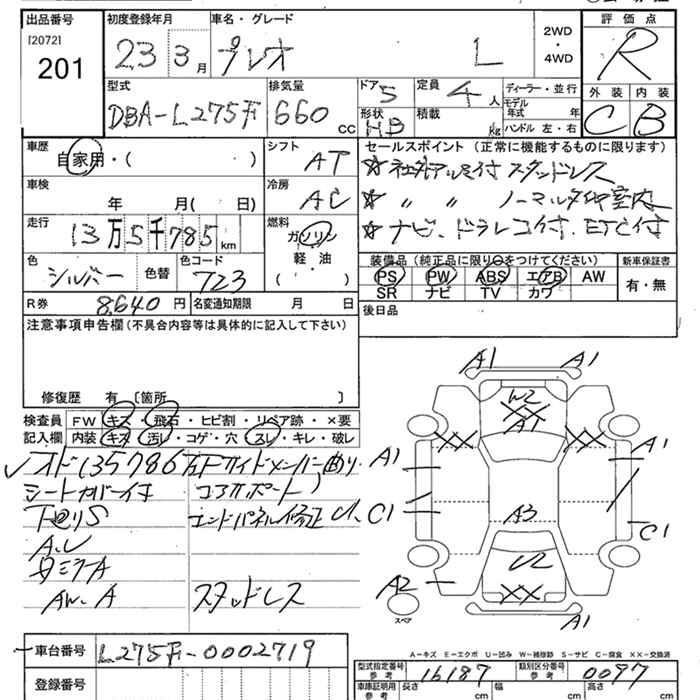 出品番号 初度登録年月 車名・グレード 評価点
[2072]
201 23 3月 プレオ L 2WD・4WD R
型式 排気量 ドア 5 定員 4人 ディーラー・並行 外装 内装
DBA-L275F 660cc 形状 HB 積載 kg モデル年式 年 C B
ハンドル 左・右
車歴 シフト セールスポイント (正常に機能するものに限ります)
自家用・( ) AT ☆社外アルミ付 スタッドレス
車検 冷房 ☆ 〃 〃 ノーマルタイヤ室内
年 月( 日) AC ☆ナビ、ドラレコ付、ETC付
走行 燃料
13万5千785km ガソリン
軽・油
( )
色 色替 色コード 装備品(純正品に限り○をつけてください) 新車保証書
シルバー 723 PS PW ABS エアB AW 有・無
SR ナビ TV カワ
R券 8,640円 名変通知期限 月 日 後日品
注意事項申告欄(不具合内容等は具体的に記入して下さい)
修復歴 有 〔箇所 〕
検査員 FW キズ・飛石・ヒビ割・リペア跡・×要
記入欄 内装 キズ・汚レ・コゲ・穴・スレ・キレ・破レ
オド135786 右Fサイドメンバー曲り
シートカバー付 コアサポート
下廻りS エンドパネル修正
A.U
AW.A スタッドレス
A1 A1
W2
XX
A1
XX XX
A1 A1
C1 A3 C1
U2
A2 XX
スペア A1
A-キズ E-エクボ U-凹み W-補修跡 S-サビ C-腐食 XX-交換済
車台番号 L275F-0002719
型式指定番号 参考 16187 類別区分番号 参考 0097
登録番号 車庫証明用 参考 長さ cm 幅 cm 高さ cm